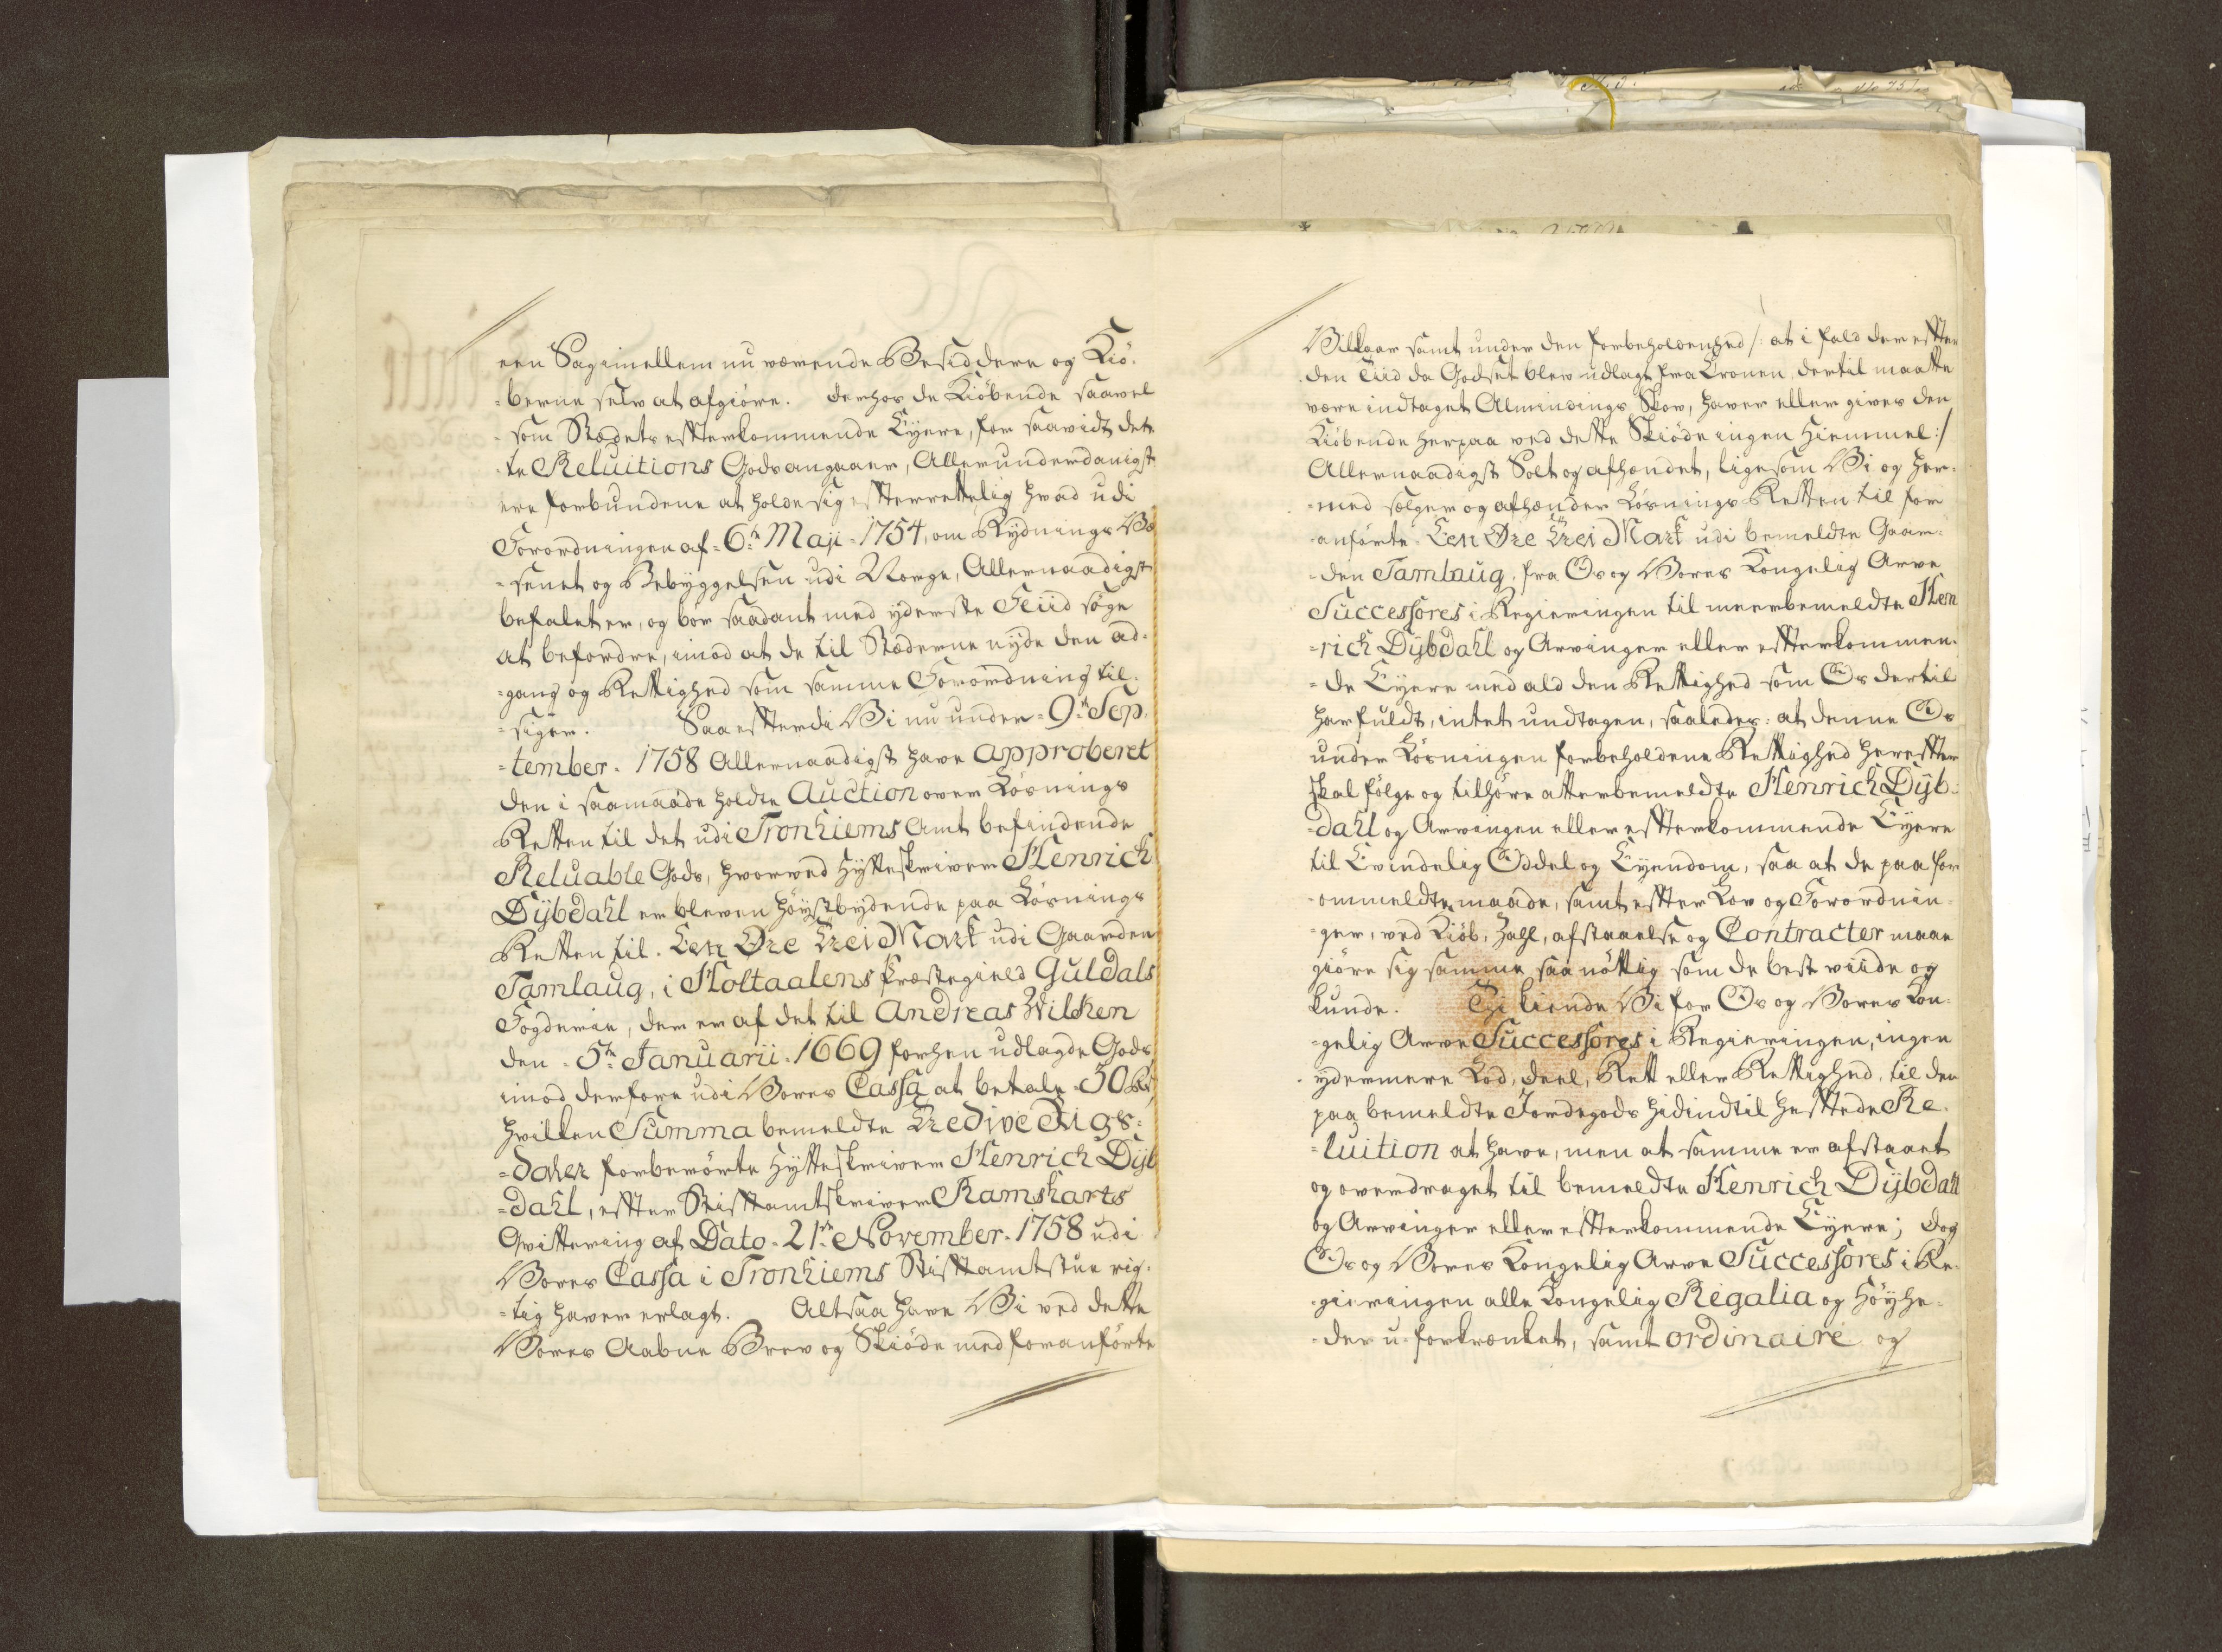 een Sag imellem nu værende Besiddere og Kiö-
=berne selv at afgiöre. Derhos de Kiöbende saavel
som Stædets effterkommende Eyere, for saavidt det-
te Reluitions Gods angaaer, Allerunderdanigst
ere forbundene at holde sig effterrettelig hvad udi
Forordningen af 6te Maji 1754, om Rydnings Væ
=senet og Bebyggelsen udi Norge, Allernaadigst
befalet er, og bör saadant med yderste Fliid söge
at befordre, imod at de til Stæderne nyde den ad-
=gang og Rettighed som samme Forordning til-
=siger. Saa effterdi Vi nu under 9te Sep-
=tember 1758 Allernaadigst have approberet
den i saamaade holdte Auction over Lösnings
Retten til det udi Tronhiems Amt befindende
Reluable Gods, hvorved Hytteskriver Henrich
Dybdahl er bleven höystbydende paa Lösnings
Retten til Een Øre Trei Mark udi Gaarden
Tamlaug, i Holtaalens Præstegield Guldals
Fogderie, der er af det til Andreas Wilken
den 5te Januarii 1669 forhen udlagde Gods,
imod derfore udi Vores Cassa at betale 30 Rd,
hvilken Summa bemeldte Tredive Rigs-
=daler forberörte Hytteskriver Henrich Dyb
=dahl, effter Stifftamtskriver Ramsharts
Qvittering af Dato 21de November 1758 udi
Vores Cassa i Tronhiems Stifftamtstue rig-
=tig haver erlagt. Altsaa have Vi ved dette
Vores Aabne Brev og Skiöde med foranförte
Vilkaar samt under den forbeholdenhed /: at i fald der effter
den Tiid da Godset blev udlagt fra Cronen, dertil maatte
være indtaget Alminings Skov, haver eller gives den
Kiöbende herpaa ved dette Skiöde ingen Hiemmel :/
Allernaadigst Solt og afhændet, ligesom Vi og her-
=med sælger og afhænder Lösnings Retten til for
anförte Een Øre Trei Mark udi bemeldte Gaar-
=den Tamlaug, fra Os og Vores Kongelig Arve
Successores i Regieringen til meerbemeldte Hen
=rich Dybdahl og Arvinger eller effterkommen-
=de Eyere med ald den Rettighed som Os dertil
har fuldt, intet undtagen, saaledes: at denne Os
under Lösningen forbeholdene Rettighed hereffter
skal fölge og tilhöre atterbemeldte Henrich Dyb-
=dahl og Arvingen eller effterkommende Eyere
til Evindelig Oddel og Eyendom, saa at de paa for
ommeldte maade, samt effter Lov og Forordnin-
=ger, ved Kiöb, Salg, afstaaelse og Contracter maae
giöre sig samme saa nöttig som de best viide og
kunde. Thi kiende Vi for Os og Vores Kon-
=gelig Arve Successores i Regieringen, ingen
ydermere Lod, deel, Rett eller Rettighed, til den
paa bemeldte Jordegods hidindtil hefftede Re-
=luition at have, men at samme er afstaaet
og overdraget til bemeldte Henrich Dybdahl
og Arvinger eller effterkommende Eyere; dog
Os og Vores Kongelig Arve Successores i Re-
gieringen alle Kongelig Regalia og Höyhe-
=der u-forkrænket, samt ordinaire og